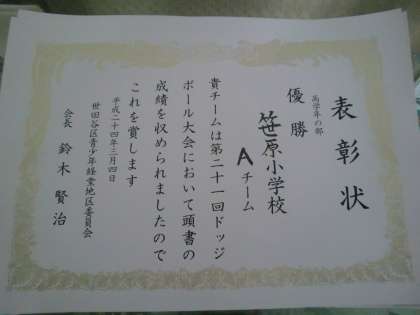 表彰状
高学年の部
優勝
笹原小学校
Aチーム
貴チームは第二十一回ドッジ
ボール大会において頭書の
成績を収められましたので
これを賞します
平成二十四年三月四日
世田谷区青少年経業地区委員会
会長 鈴木賢治